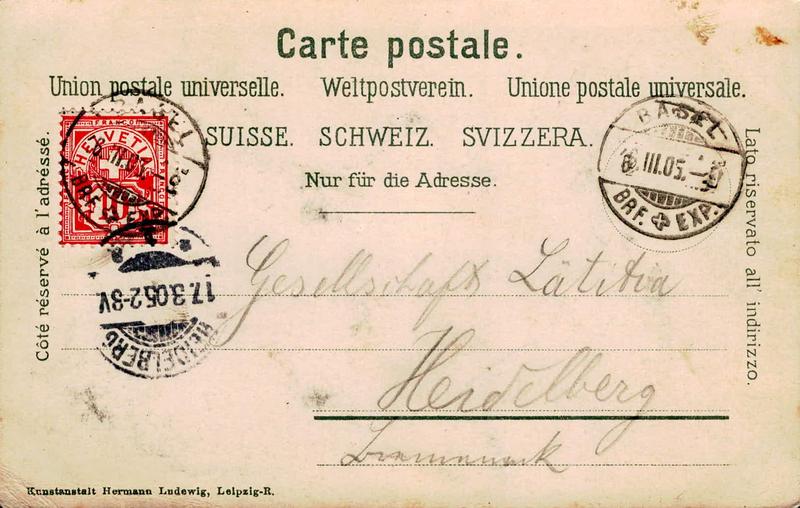 Carte postale.
Union postale universelle. Weltpostverein. Unione postale universale.
SUISSE. SCHWEIZ. SVIZZERA.
Nur für die Adresse.
Côté réservé à l'adréssé.
Lato riservato all' indirizzo.
FRANCO
HELVETIA
10
BASEL
BRF. EXP.
BASEL
III.05.
BRF. EXP.
17.3.05.2-3V.
HEIDELBERG
Gesellschaft Lätitia
Heidelberg
Kunstanstalt Hermann Ludewig, Leipzig-R.